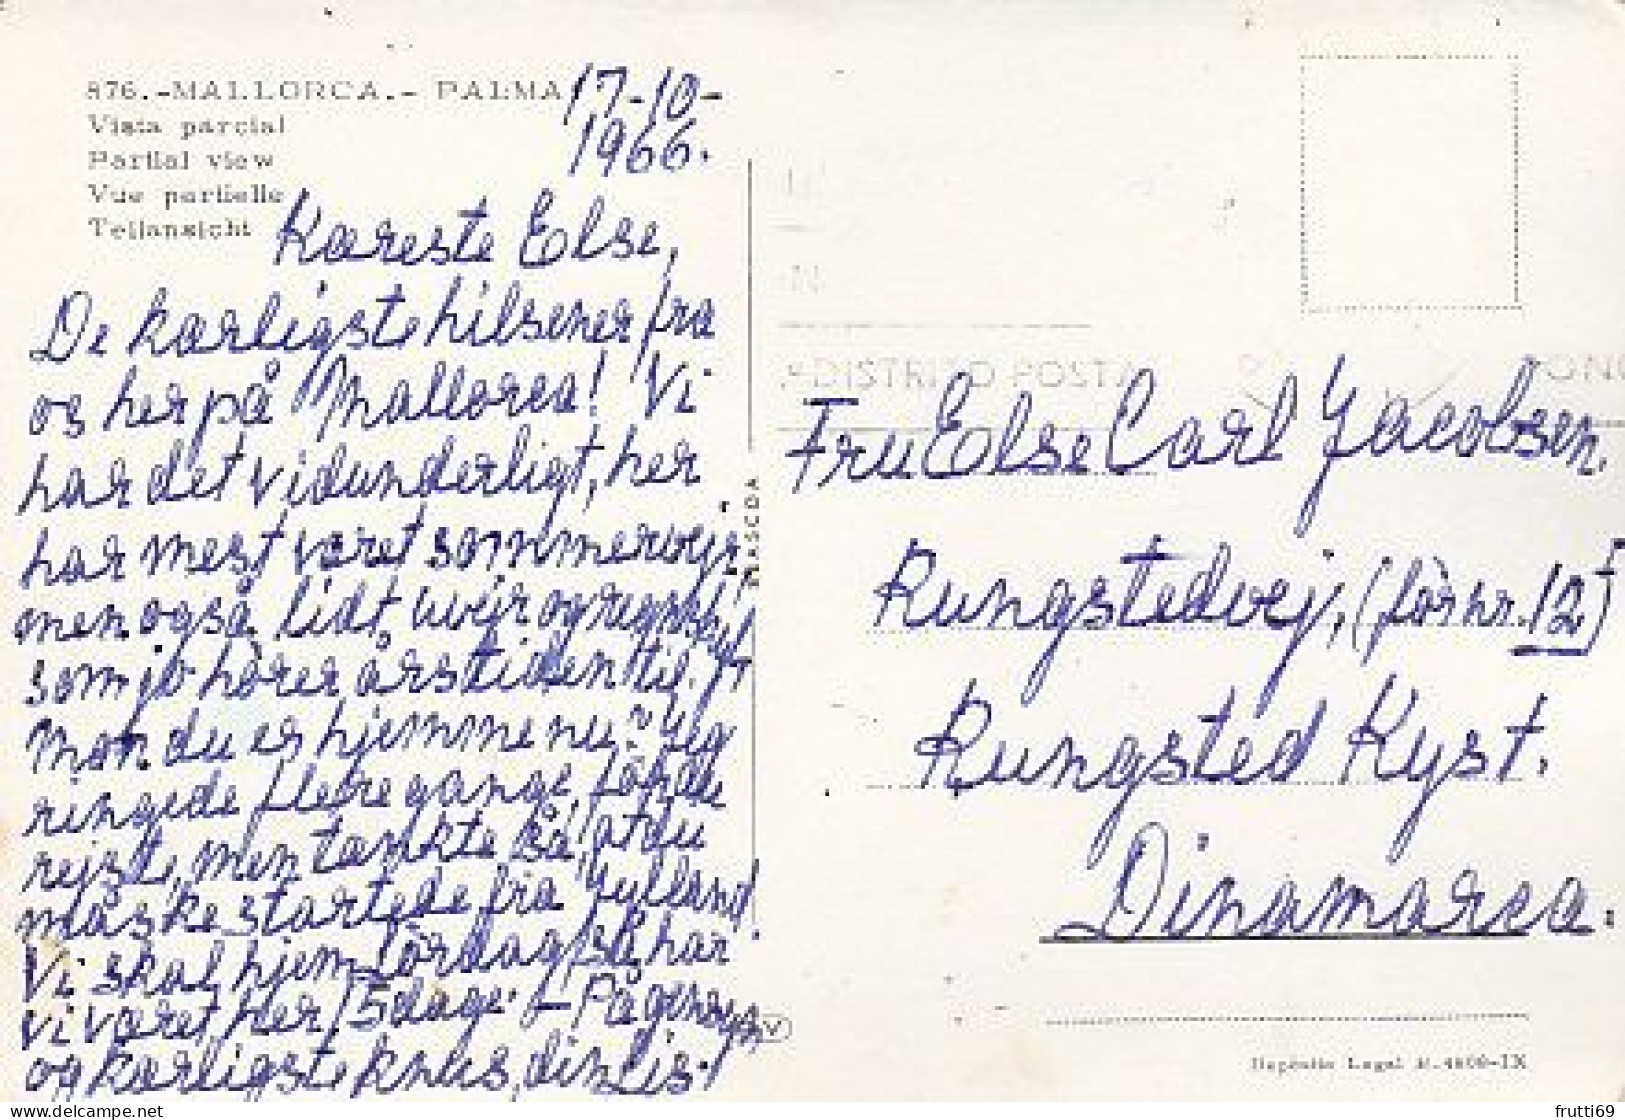 876.-MALLORCA.- PALMA
Vista parcial
Partial view
Vue partielle
Teilansicht
17-10-
1966.
Kæreste Else,
De kærligste hilsener fra
os her på Mallorca! Vi
har det vidunderligt, her
har mest været sommervejr,
men også lidt uvejr og
som jo hører årstiden til.
Mon du er hjemme nu? Jeg
ringede flere gange, før du
rejste, men tænkte så, at du
måske startede fra Jylland!
Vi skal hjem lørdag, så har
vi været her 15 dage. Pågensyn
og kærligste knus, din Lis.
MASCOA
DISTRITO POSTAL
Fru Else Carl Jacobsen.
Rungstedvej, (før nr. 12)
Rungsted Kyst.
Dinamarca.
Depósito Legal B.4608-IX
frutti69